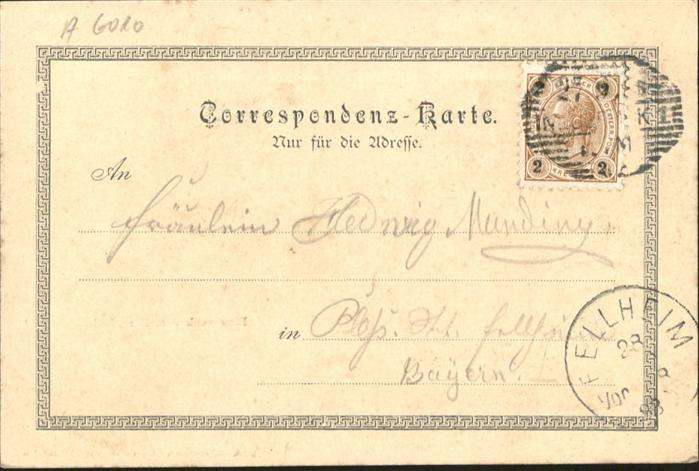 A 6010
Correspondenz-Karte.
Nur für die Adresse.
An
Fräulein Hedwig
in Pleß. St. Fellheim
Bayern.
2 2
FELLHEIM
28